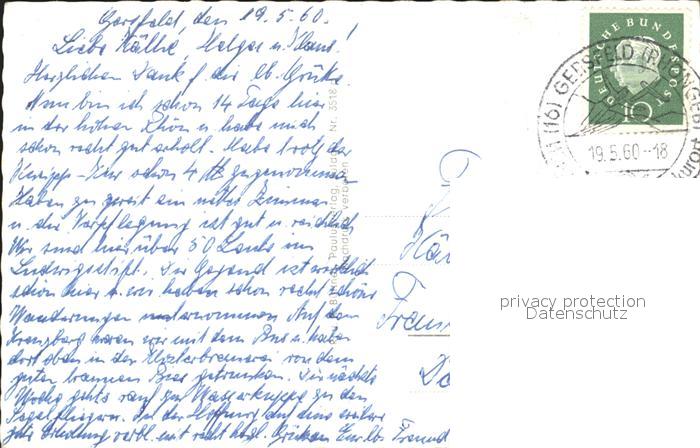 Gersfeld, den 19.5.60.
Liebe Käthe, Helga u. Klaus!
Herzlichen Dank f. der lb. Grüße
Nun bin ich schon 14 Tage hier
in der hohen Rhön u. habe mich
schon recht gut erholt. Habe trotz der
Kneipp-Kur schon 4 ℔ zugenommen
Haben zu zweit ein nettes Zimmer
u. die Verpflegung ist gut u. reichlich
Wir sind hier über 50 Leute im
Ludwigstift. Die Gegend ist wirklich
schön hier u. wir haben schon recht schöne
Wanderungen unternommen. Auf dem
Kreuzberg waren wir mit dem Bus u. haben
dort oben in der Klosterbrauerei von dem
guten braunen Bier getrunken. Die nächste
Woche gehts rauf zur Wasserkuppe zu den
Segelfliegern. In der Hoffnung auf eine weitere
gute Erholung verbl. mit recht herzl. Grüßen Euer lb. Freund
DEUTSCHE BUNDESPOST
10
(16) GERSFELD (RHÖN)
19.5.60-18
Verlag
Nr. 3518
verboten
privacy protection
Datenschutz